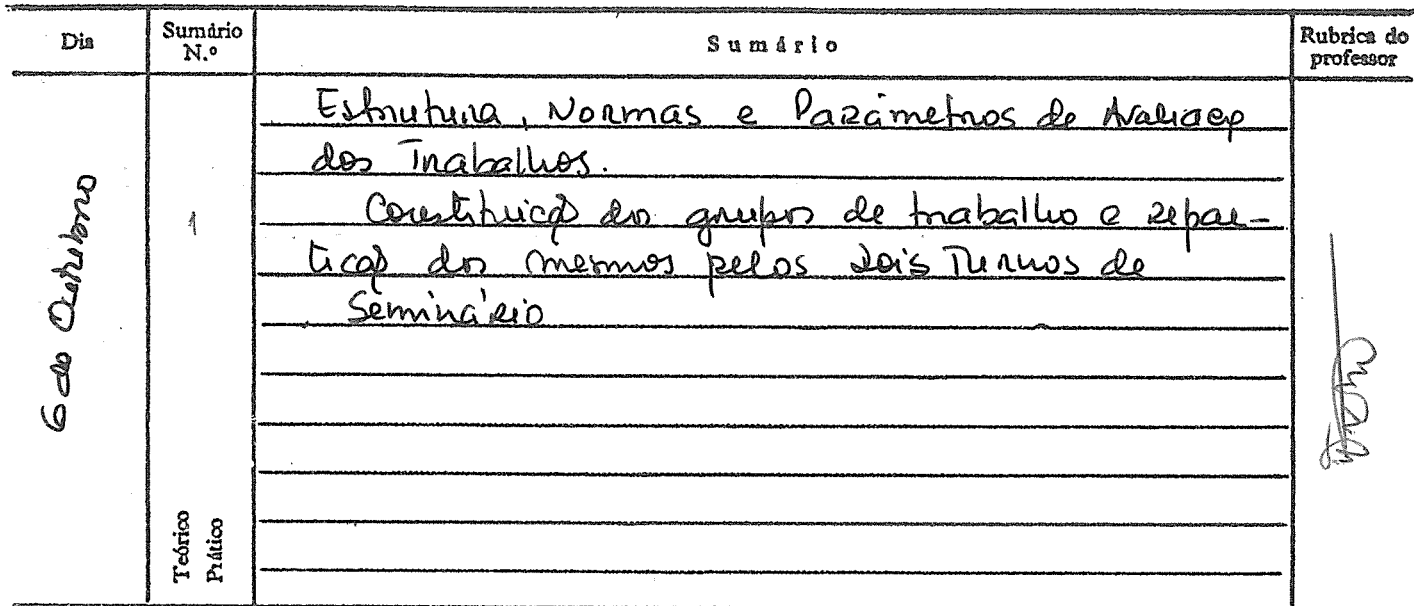 Dia
Sumário N.º
Sumário
Rubrica do professor
6 de Outubro
1
Teórico
Prático
Estrutura, Normas e Parâmetros de Avaliação
dos Trabalhos.
Constituição dos grupos de trabalho e repar-
tição dos mesmos pelos dois Turnos de
Seminário